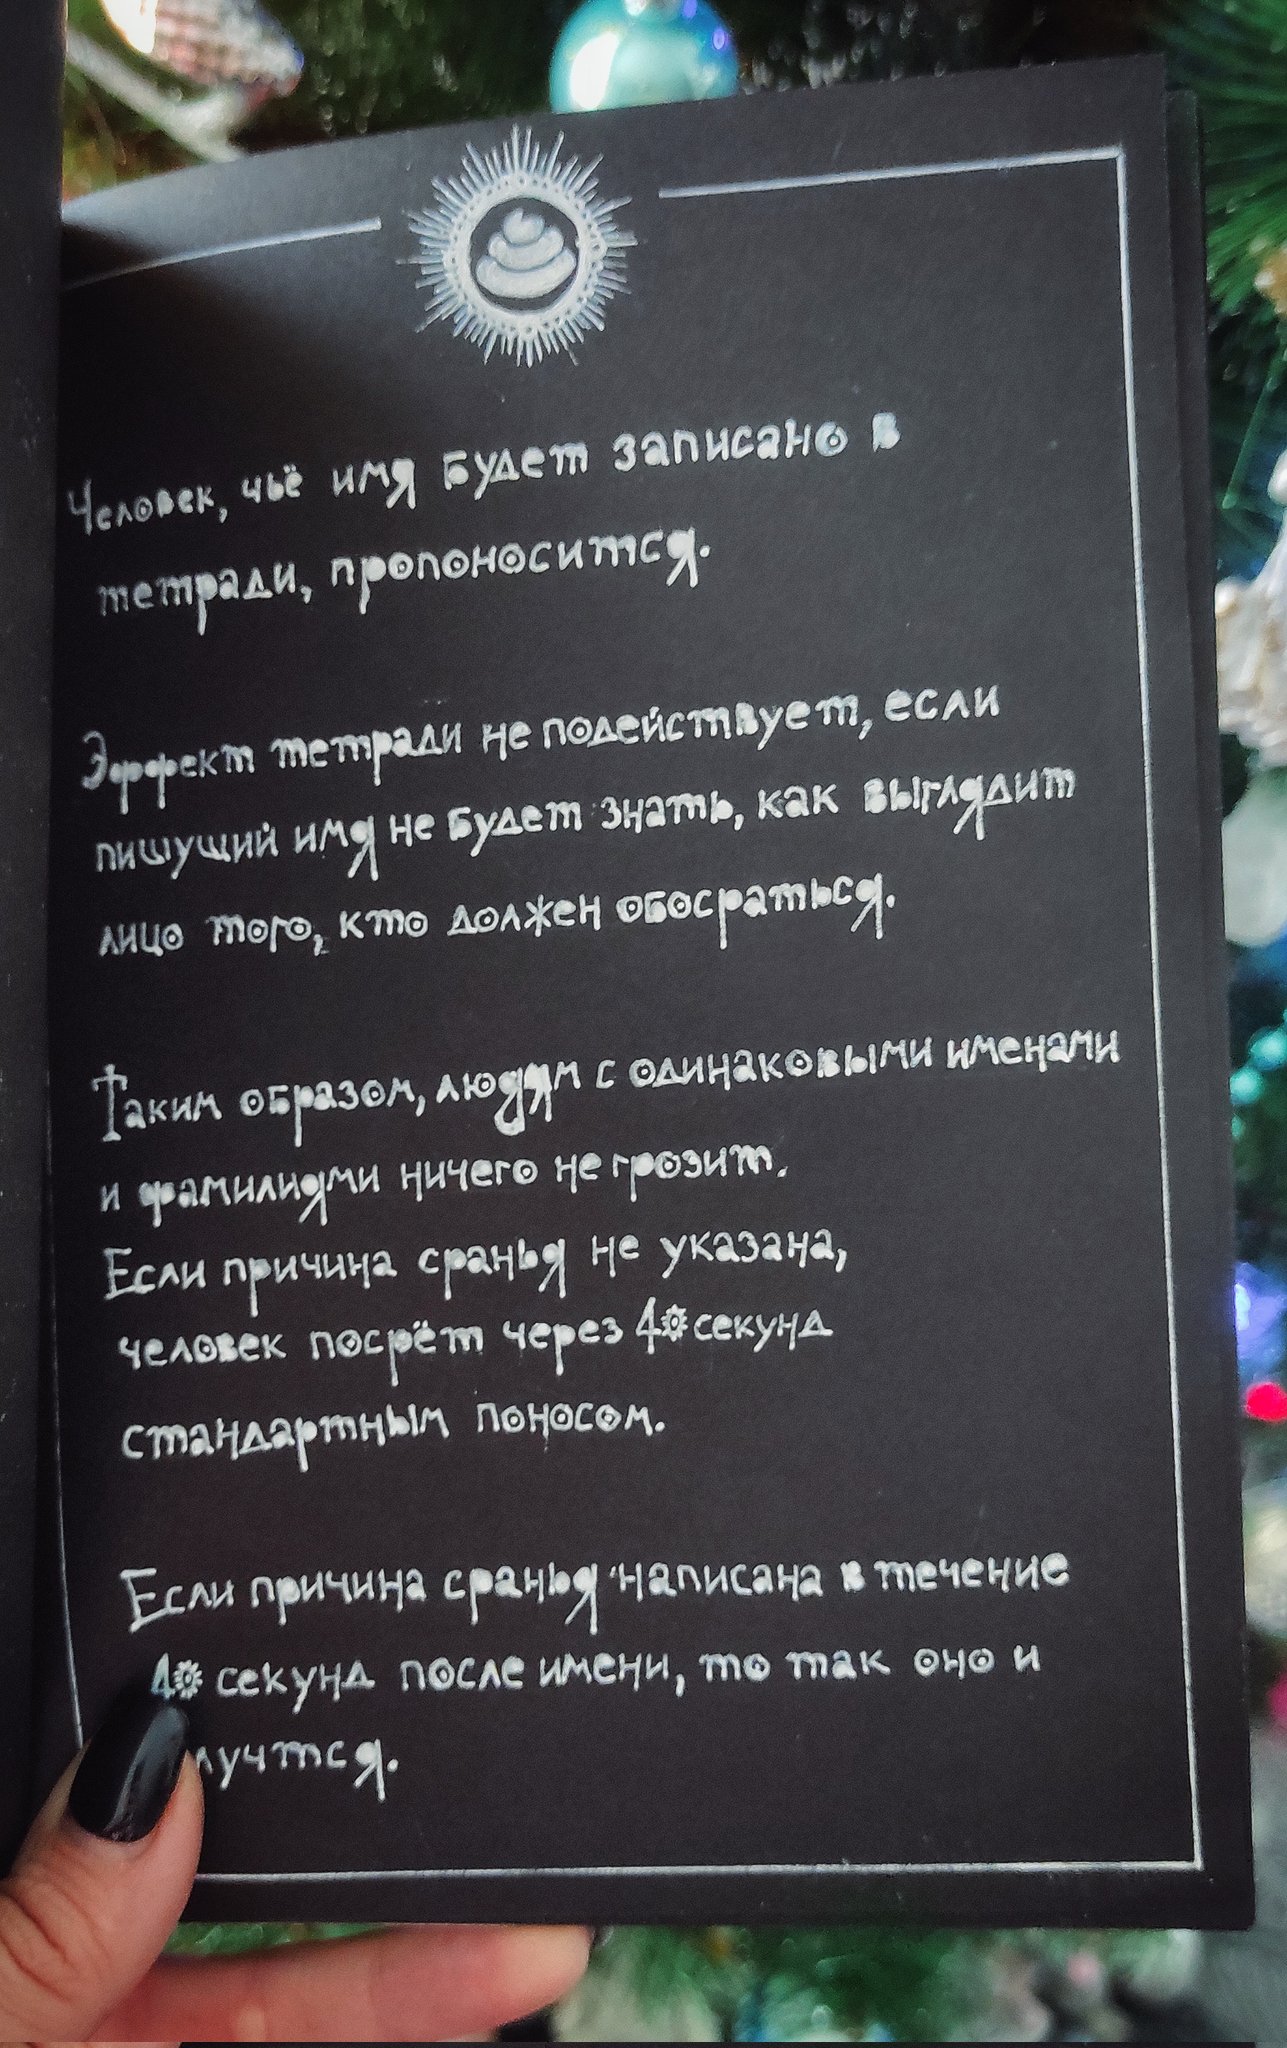 Человек, чьё имя будет записано в
тетради, пропоносится.
Эффект тетради не подействует, если
пишущий имя не будет знать, как выглядит
лицо того, кто должен обосраться.
Таким образом, людям с одинаковыми именами
и фамилиями ничего не грозит.
Если причина сранья не указана,
человек посрёт через 40 секунд
стандартным поносом.
Если причина сранья написана в течение
40 секунд после имени, то так оно и